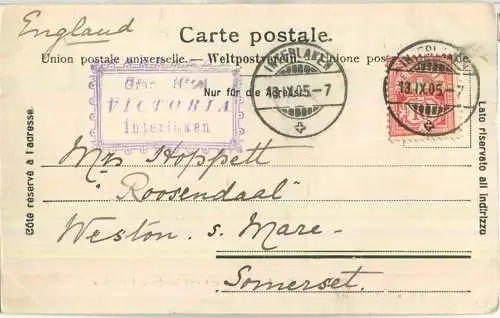 England
Carte postale.
Union postale universelle. — Weltpostverein. Unione
Nur für die
VICTORIA
Interlaken
INTERLAKEN
13.IX.05.–7
INTERLAKEN
13.IX.05.–7
Côte réservé à l'adresse
Lato riservato all indirizzo
Mrs Hoppett
"Roosendaal"
Weston. s. Mare-
Somerset.